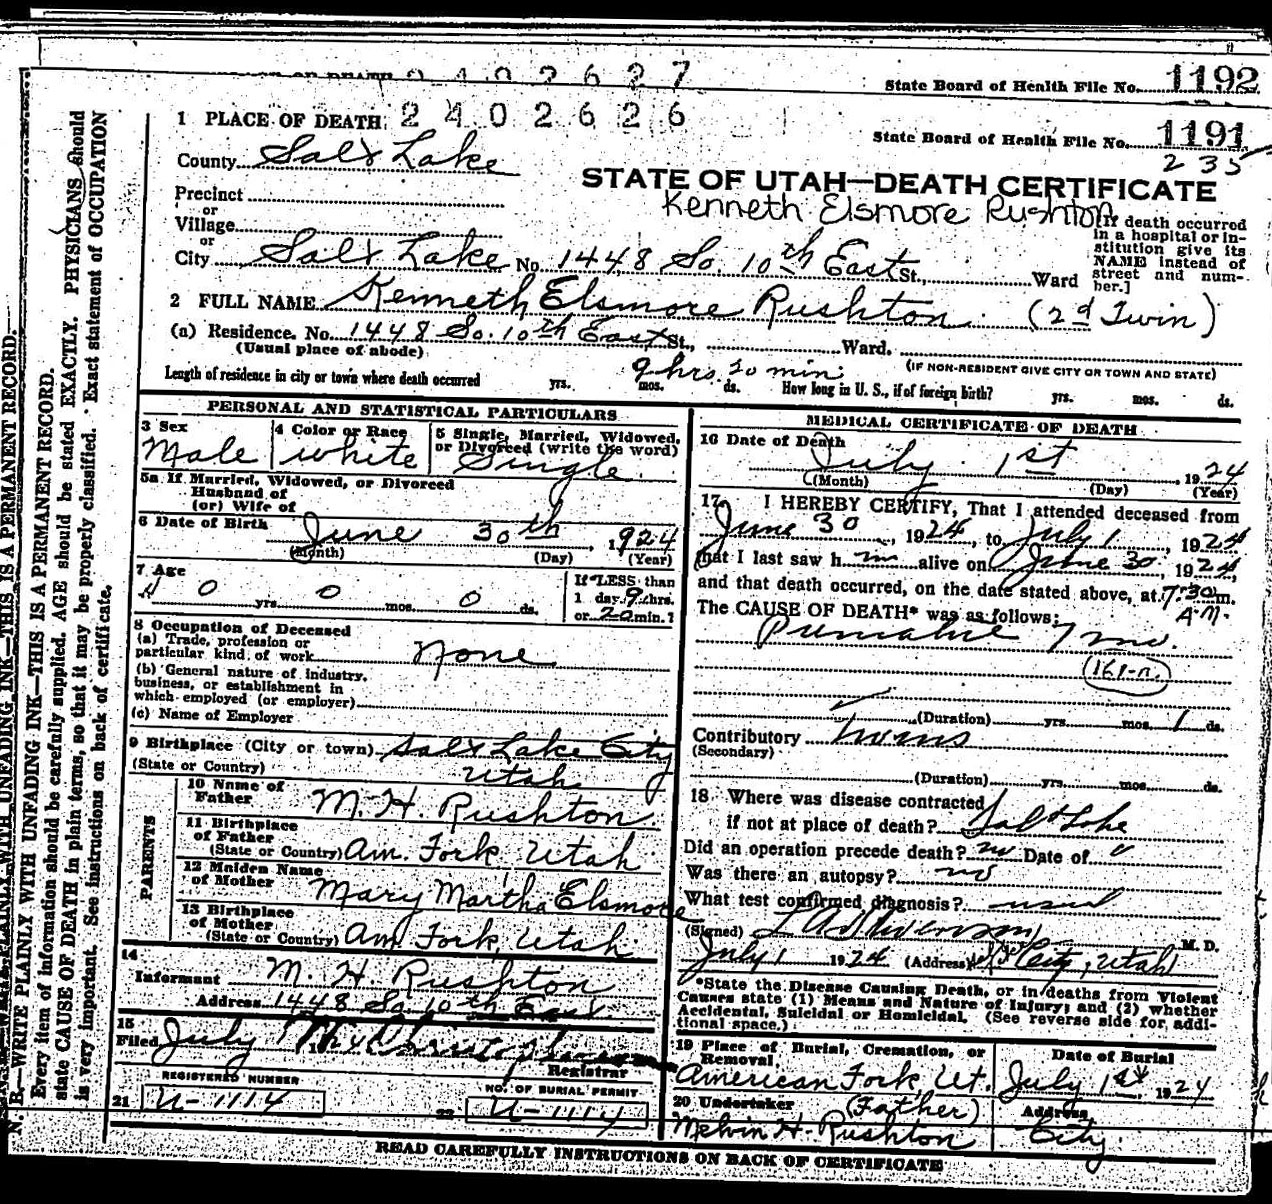 2402627
State Board of Health File No. 1192
1 PLACE OF DEATH 2402626
State Board of Health File No. 1191
235
County Salt Lake
STATE OF UTAH—DEATH CERTIFICATE
Kenneth Elsmore Rushton
Precinct
or
Village
or
City Salt Lake No. 1448 So. 10th East St., Ward
[If death occurred
in a hospital or in-
stitution give its
NAME instead of
street and num-
ber.]
2 FULL NAME Kenneth Elsmore Rushton (2d Twin)
(a) Residence. No. 1448 So. 10th East St., Ward.
(Usual place of abode) (IF NON-RESIDENT GIVE CITY OR TOWN AND STATE)
9 hrs. 20 min.
Length of residence in city or town where death occurred yrs. mos. ds. How long in U. S., if of foreign birth? yrs. mos. ds.
PERSONAL AND STATISTICAL PARTICULARS
3 Sex Male
4 Color or Race White
5 Single, Married, Widowed,
or Divorced (write the word)
Single
5a If Married, Widowed, or Divorced
Husband of
(or) Wife of
6 Date of Birth June 30th, 1924
(Month) (Day) (Year)
7 Age
0 yrs. 0 mos. 0 ds.
If LESS than
1 day, 9 hrs.
or 20 min.?
8 Occupation of Deceased
(a) Trade, profession or
particular kind of work None
(b) General nature of industry,
business, or establishment in
which employed (or employer)
(c) Name of Employer
9 Birthplace (City or town) Salt Lake City
(State or Country) Utah
PARENTS
10 Name of
Father M. H. Rushton
11 Birthplace
of Father
(State or Country) Am. Fork, Utah
12 Maiden Name
of Mother Mary Martha Elsmore
13 Birthplace
of Mother
(State or Country) Am. Fork, Utah
14
Informant M. H. Rushton
Address 1448 So. 10th East
15
Filed July
Registrar
REGISTERED NUMBER
21 U-1114
NO. OF BURIAL PERMIT
22 U-1114
MEDICAL CERTIFICATE OF DEATH
16 Date of Death
July 1st, 1924
(Month) (Day) (Year)
17 I HEREBY CERTIFY, That I attended deceased from
June 30, 1924, to July 1, 1924
that I last saw h m alive on June 30, 1924,
and that death occurred, on the date stated above, at 7:30 m.
A.M.
The CAUSE OF DEATH* was as follows:
Premature 7 mo.
(Duration) yrs. mos. 1 ds.
Contributory Twins
(Secondary)
(Duration) yrs. mos. ds.
18 Where was disease contracted
if not at place of death? Salt Lake
Did an operation precede death? no Date of
Was there an autopsy? no
What test confirmed diagnosis? usual
(Signed) M. D.
July 1 1924 (Address) City, Utah
*State the Disease Causing Death, or in deaths from Violent
Causes state (1) Means and Nature of Injury; and (2) whether
Accidental, Suicidal or Homicidal. (See reverse side for addi-
tional space.)
19 Place of Burial, Cremation, or
Removal
American Fork, Ut.
Date of Burial
July 1st, 1924
20 Undertaker (Father)
Melvin H. Rushton
Address
City.
READ CAREFULLY INSTRUCTIONS ON BACK OF CERTIFICATE
N. B.—WRITE PLAINLY WITH UNFADING INK—THIS IS A PERMANENT RECORD.
WITH UNFADING INK—THIS IS A PERMANENT RECORD.
Every item of information should be carefully supplied. AGE should be stated EXACTLY. PHYSICIANS should
state CAUSE OF DEATH in plain terms, so that it may be properly classified. Exact statement of OCCUPATION
is very important. See instructions on back of certificate.